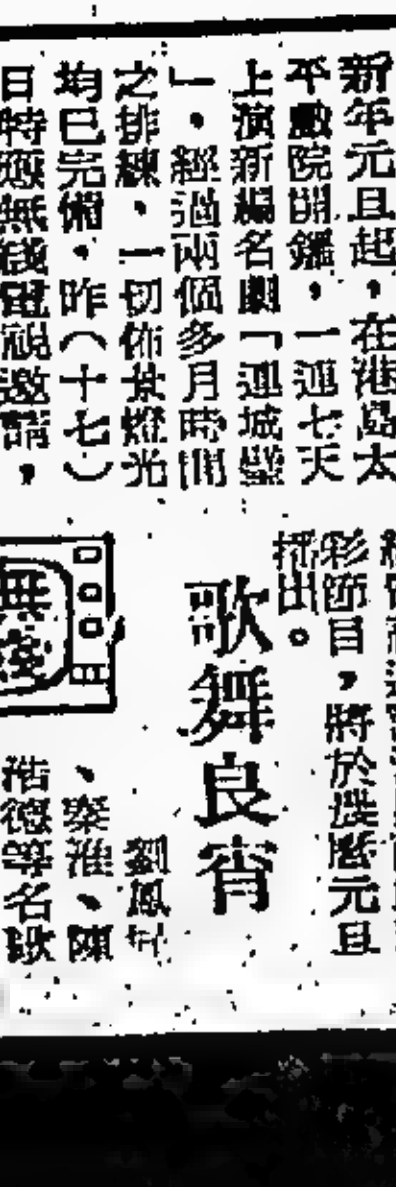 新年元旦起，在港島太
平戲院開鑼，一連七天
上演新編名劇「連城璧
」，經過兩個多月時間
之排練，一切佈景燈光
均已完備，昨（十七）
日特應無綫電視邀請，
彩節目，將於農曆元旦
播出。
歌舞良宵
劉鳳
、秦淮、陳
浩德等名歌
無
綫